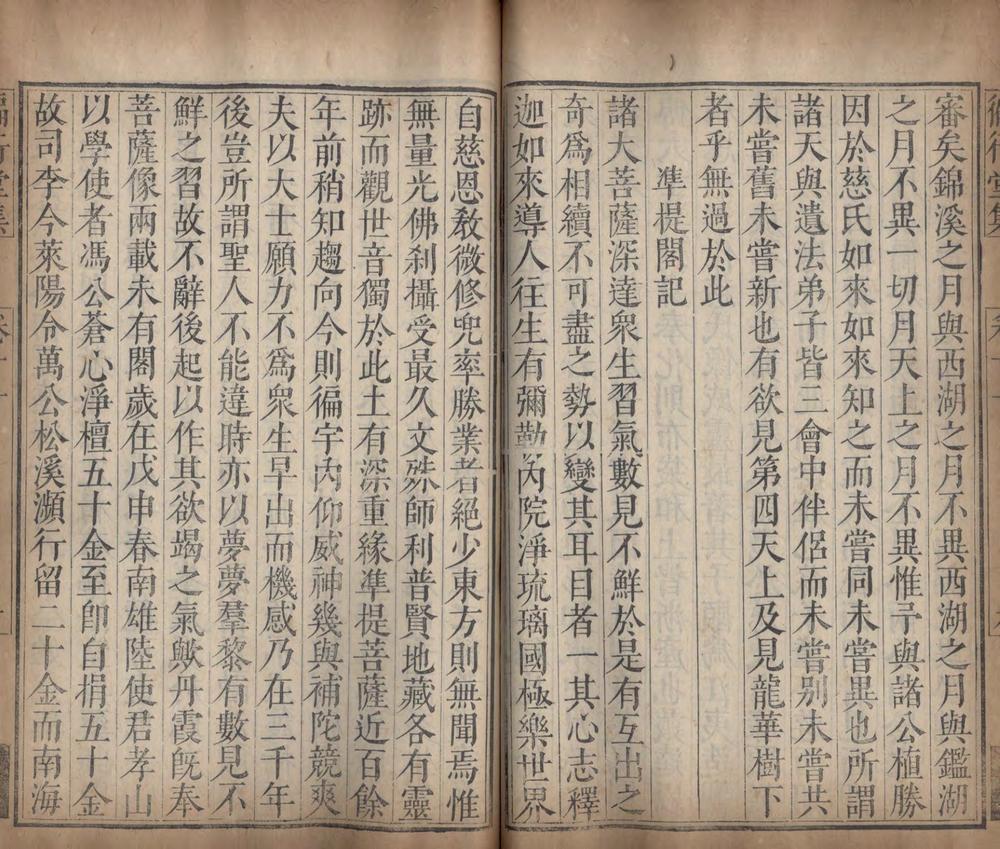 審矣錦溪之月與西湖之月不異西湖之月與鑑湖
之月不異一切月天上之月不異惟予與諸公植勝
因於慈氏如來如來知之而未嘗同未嘗異也所謂
諸天與遺法弟子皆三會中伴侶而未嘗別未嘗共
未嘗舊未嘗新也有欲見第四天上及見龍華樹下
者乎無過於此
準提閣記
諸大菩薩深達衆生習氣數見不鮮於是有互出之
奇爲相續不可盡之勢以變其耳目者一其心志釋
迦如來導人往生有彌勒內院淨琉璃國極樂世界
自慈恩教微修兜率勝業者絕少東方則無聞焉惟
無量光佛刹攝受最久文殊師利普賢地藏各有靈
跡而觀世音獨於此土有深重緣準提菩薩近百餘
年前稍知趨向今則徧宇內仰威神幾與補陀競爽
夫以大士願力不爲衆生早出而機感乃在三千年
後豈所謂聖人不能違時亦以夢夢羣黎有數見不
鮮之習故不辭後起以作其欲竭之氣歟丹霞旣奉
菩薩像兩載未有閣歲在戊申春南雄陸使君孝山
以學使者馮公蒼心淨檀五十金至卽自捐五十金
故司李今萊陽令萬公松溪瀕行留二十金而南海